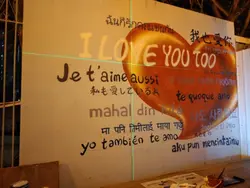 ฉันก็รักคุณเช่นกัน
我也爱你
I LOVE YOU TOO
Je t'aime aussi
私も愛している
te quoque amo
mahal din
पनि तिमीलाई माया
yo también te amo
aku pun mencintaimu